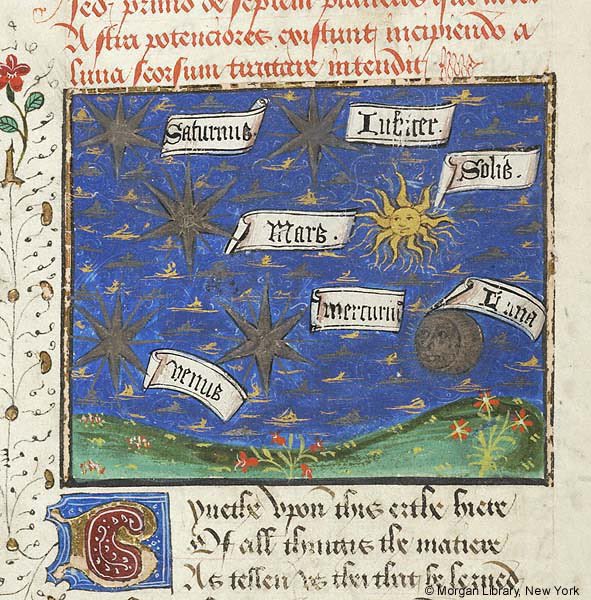 Sed primo de septem planetis que inter
Astra potenciores existunt incipiendo a
luna seorsum tractare intendit
Saturnus.
Iubiter.
Solis.
Mars.
Mercurius
Luna
Venus
Bynethe vpon this erthe hiere
Of all thinges the matiere
As tellen vs thei that be lerned
© Morgan Library, New York